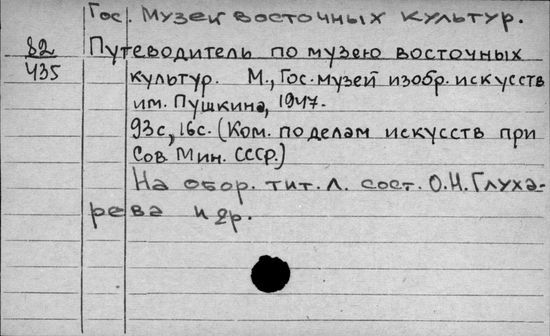 Гос. Музей восточных культур.
82 Путеводитель по музею восточных
435 культур. М., Гос. музей изобр. искусств
им. Пушкина, 1947.
93с, 16с. (Ком. по делам искусств при
Сов. Мин. СССР.)
На обор. тит. л. сост. О.Н. Глуха-
рева и др.